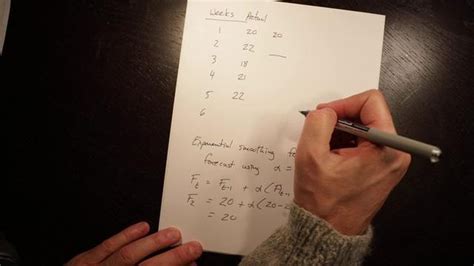 Weeks Actual
1 20 20
2 22
3 18
4 21
5 22
6
Exponential smoothing
forecast using α =
Ft = Ft-1 + α(Ft-1
F2 = 20 + α(20-2
= 20